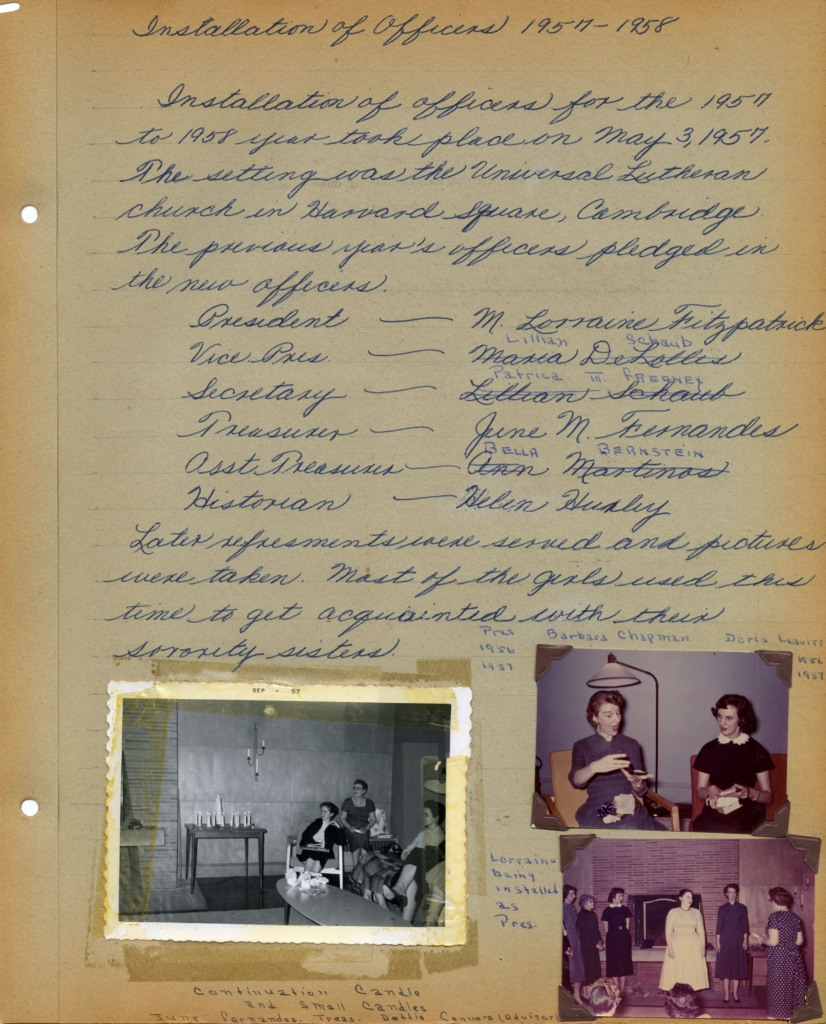 Installation of Officers 1957-1958
Installation of officers for the 1957
to 1958 year took place on May 3, 1957.
The setting was the Universal Lutheran
church in Harvard Square, Cambridge.
The previous year's officers pledged in
the new officers.
President — M. Lorraine Fitzpatrick
Lillian Schaub
Vice Pres. — Maria DeLollis
Patrica M. FREENEY
Secretary — Lillian Schaub
Treasurer — June M. Fernandes
BELLA BERNSTEIN
Asst. Treasurer — Ann Martinos
Historian — Helen Hurley
Later refresments were served and pictures
were taken. Most of the girls used this
time to get acquainted with their
sorority sisters.
Pres Barbara Chapman Doris Leavitt
1956 1956
1957 1957
SEP • 57
Lorraine
being
installed
as
Pres.
Continuation Candle
and Small Candles
June Fernandes. Treas. Dottie Connors (Advisor)